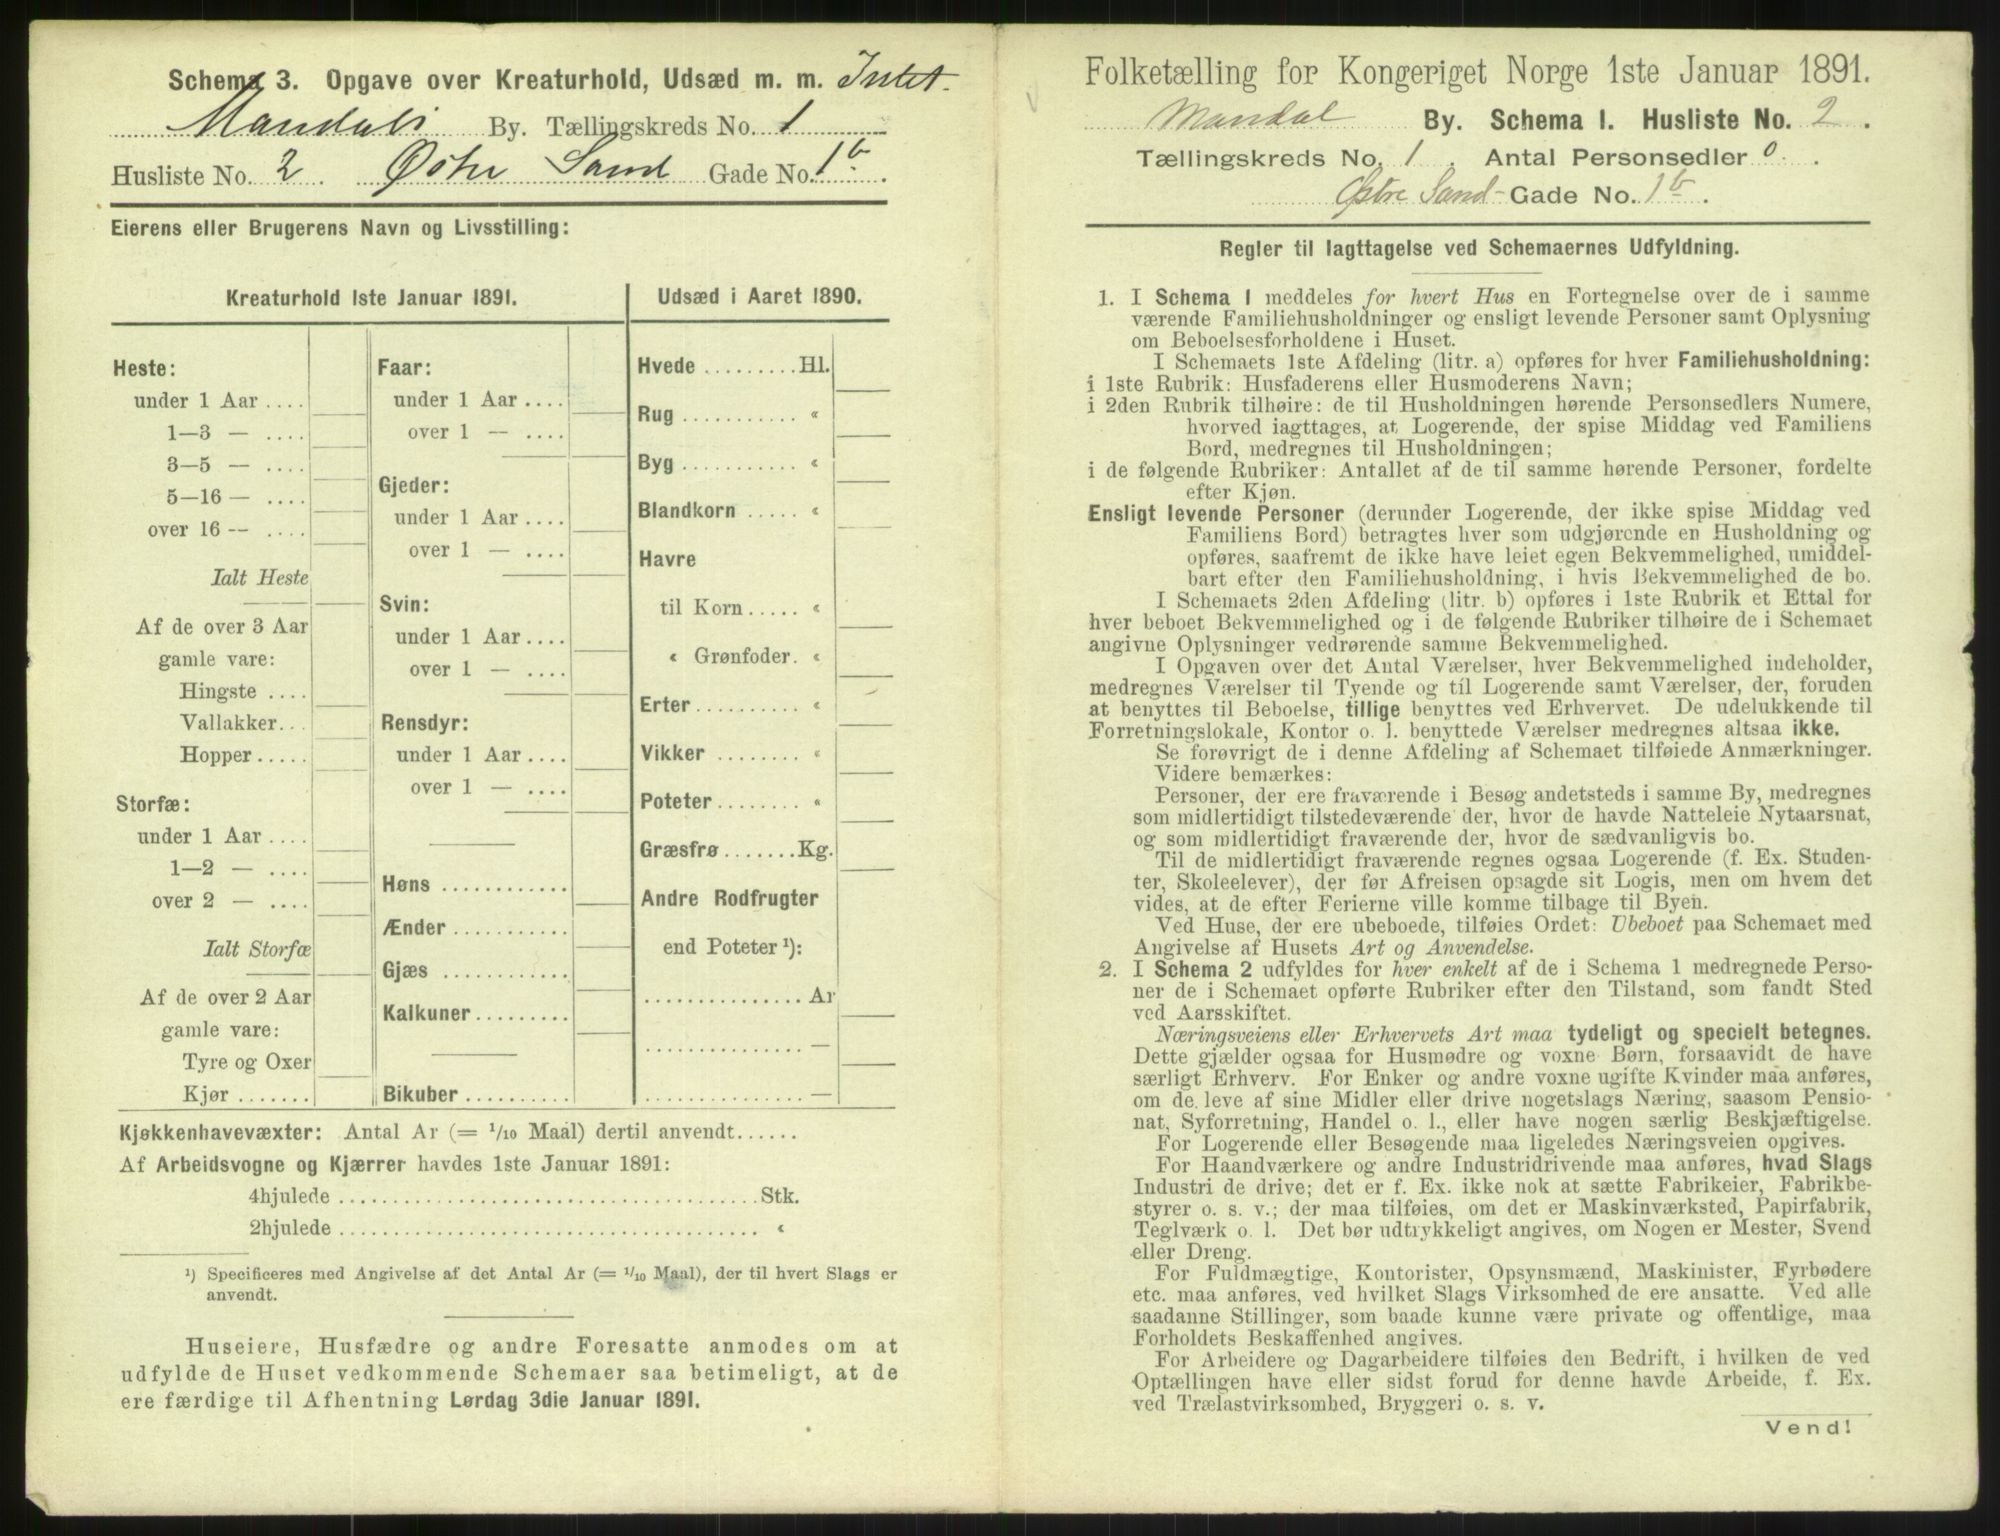 Schema 3. Opgave over Kreaturhold, Udsæd m. m. Intet.
Mandals By. Tællingskreds No. 1
Husliste No. 2. Østre Sand Gade No. 1b.
Eierens eller Brugerens Navn og Livsstilling:
Kreaturhold 1ste Januar 1891.
Heste:
under 1 Aar ....
1—3 — ....
3—5 — ....
5—16 — ....
over 16 — ....
Ialt Heste
Af de over 3 Aar
gamle vare:
Hingste ....
Vallakker...
Hopper.....
Storfæ:
under 1 Aar ....
1—2 — ....
over 2 — ....
Ialt Storfæ
Af de over 2 Aar
gamle vare:
Tyre og Oxer
Kjør .......
Faar:
under 1 Aar ....
over 1 — ....
Gjeder:
under 1 Aar ....
over 1 — ....
Svin:
under 1 Aar ....
over 1 — ....
Rensdyr:
under 1 Aar ....
over 1 — ....
Høns ............
Ænder ...........
Gjæs ............
Kalkuner.........
Bikuber ..........
Udsæd i Aaret 1890.
Hvede .........Hl.
Rug ........... «
Byg ........... «
Blandkorn ..... «
Havre
til Korn ..... «
« Grønfoder. «
Erter .......... «
Vikker ........ «
Poteter ........ «
Græsfrø .......Kg.
Andre Rodfrugter
end Poteter ¹):
............... Ar
............... —
............... —
Kjøkkenhavevæxter: Antal Ar (= 1/10 Maal) dertil anvendt......
Af Arbeidsvogne og Kjærrer havdes 1ste Januar 1891:
4hjulede ........................................Stk.
2hjulede ........................................ «
¹) Specificeres med Angivelse af det Antal Ar (= 1/10 Maal), der til hvert Slags er
anvendt.
Huseiere, Husfædre og andre Foresatte anmodes om at
udfylde de Huset vedkommende Schemaer saa betimeligt, at de
ere færdige til Afhentning Lørdag 3die Januar 1891.
Folketælling for Kongeriget Norge 1ste Januar 1891.
Mandal By. Schema I. Husliste No. 2.
Tællingskreds No. 1. Antal Personsedler 0.
Østre Sand- Gade No. 1b.
Regler til Iagttagelse ved Schemaernes Udfyldning.
1. I Schema 1 meddeles for hvert Hus en Fortegnelse over de i samme
værende Familiehusholdninger og ensligt levende Personer samt Oplysning
om Beboelsesforholdene i Huset.
I Schemaets 1ste Afdeling (litr. a) opføres for hver Familiehusholdning:
i 1ste Rubrik: Husfaderens eller Husmoderens Navn;
i 2den Rubrik tilhøire: de til Husholdningen hørende Personsedlers Numere,
hvorved iagttages, at Logerende, der spise Middag ved Familiens
Bord, medregnes til Husholdningen;
i de følgende Rubriker: Antallet af de til samme hørende Personer, fordelte
efter Kjøn.
Ensligt levende Personer (derunder Logerende, der ikke spise Middag ved
Familiens Bord) betragtes hver som udgjørende en Husholdning og
opføres, saafremt de ikke have leiet egen Bekvemmelighed, umiddel-
bart efter den Familiehusholdning, i hvis Bekvemmelighed de bo.
I Schemaets 2den Afdeling (litr. b) opføres i 1ste Rubrik et Ettal for
hver beboet Bekvemmelighed og i de følgende Rubriker tilhøire de i Schemaet
angivne Oplysninger vedrørende samme Bekvemmelighed.
I Opgaven over det Antal Værelser, hver Bekvemmelighed indeholder,
medregnes Værelser til Tyende og til Logerende samt Værelser, der, foruden
at benyttes til Beboelse, tillige benyttes ved Erhvervet. De udelukkende til
Forretningslokale, Kontor o. l. benyttede Værelser medregnes altsaa ikke.
Se forøvrigt de i denne Afdeling af Schemaet tilføiede Anmærkninger.
Videre bemærkes:
Personer, der ere fraværende i Besøg andetsteds i samme By, medregnes
som midlertidigt tilstedeværende der, hvor de havde Natteleie Nytaarsnat,
og som midlertidigt fraværende der, hvor de sædvanligvis bo.
Til de midlertidigt fraværende regnes ogsaa Logerende (f. Ex. Studen-
ter, Skoleelever), der før Afreisen opsagde sit Logis, men om hvem det
vides, at de efter Ferierne ville komme tilbage til Byen.
Ved Huse, der ere ubeboede, tilføies Ordet: Ubeboet paa Schemaet med
Angivelse af Husets Art og Anvendelse.
2. I Schema 2 udfyldes for hver enkelt af de i Schema 1 medregnede Perso-
ner de i Schemaet opførte Rubriker efter den Tilstand, som fandt Sted
ved Aarsskiftet.
Næringsveiens eller Erhvervets Art maa tydeligt og specielt betegnes.
Dette gjælder ogsaa for Husmødre og voxne Børn, forsaavidt de have
særligt Erhverv. For Enker og andre voxne ugifte Kvinder maa anføres,
om de leve af sine Midler eller drive nogetslags Næring, saasom Pensio-
nat, Syforretning, Handel o. l., eller have nogen særlig Beskjæftigelse.
For Logerende eller Besøgende maa ligeledes Næringsveien opgives.
For Haandværkere og andre Industridrivende maa anføres, hvad Slags
Industri de drive; det er f. Ex. ikke nok at sætte Fabrikeier, Fabrikbe-
styrer o. s. v.; der maa tilføies, om det er Maskinværksted, Papirfabrik,
Teglværk o. l. Det bør udtrykkeligt angives, om Nogen er Mester, Svend
eller Dreng.
For Fuldmægtige, Kontorister, Opsynsmænd, Maskinister, Fyrbødere
etc. maa anføres, ved hvilket Slags Virksomhed de ere ansatte. Ved alle
saadanne Stillinger, som baade kunne være private og offentlige, maa
Forholdets Beskaffenhed angives.
For Arbeidere og Dagarbeidere tilføies den Bedrift, i hvilken de ved
Optællingen have eller sidst forud for denne havde Arbeide, f. Ex.
ved Trælastvirksomhed, Bryggeri o. s. v.
Vend!